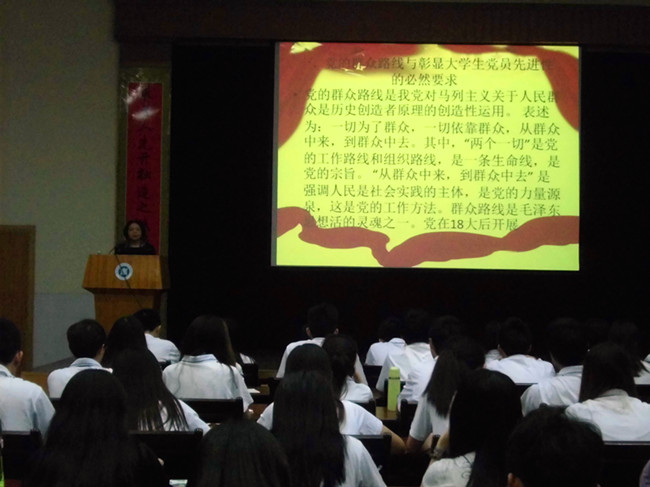 党的群众路线与彰显大学生党员先进性
的必然要求
• 党的群众路线是我党对马列主义关于人民群
众是历史创造者原理的创造性运用。 表述
为：一切为了群众，一切依靠群众，从群众
中来，到群众中去。其中，“两个一切”是党
的工作路线和组织路线，是一条生命线，是
党的宗旨。“从群众中来，到群众中去”是
强调人民是社会实践的主体，是党的力量源
泉，这是党的工作方法。群众路线是毛泽东
思想活的灵魂之一。党在18大后开展